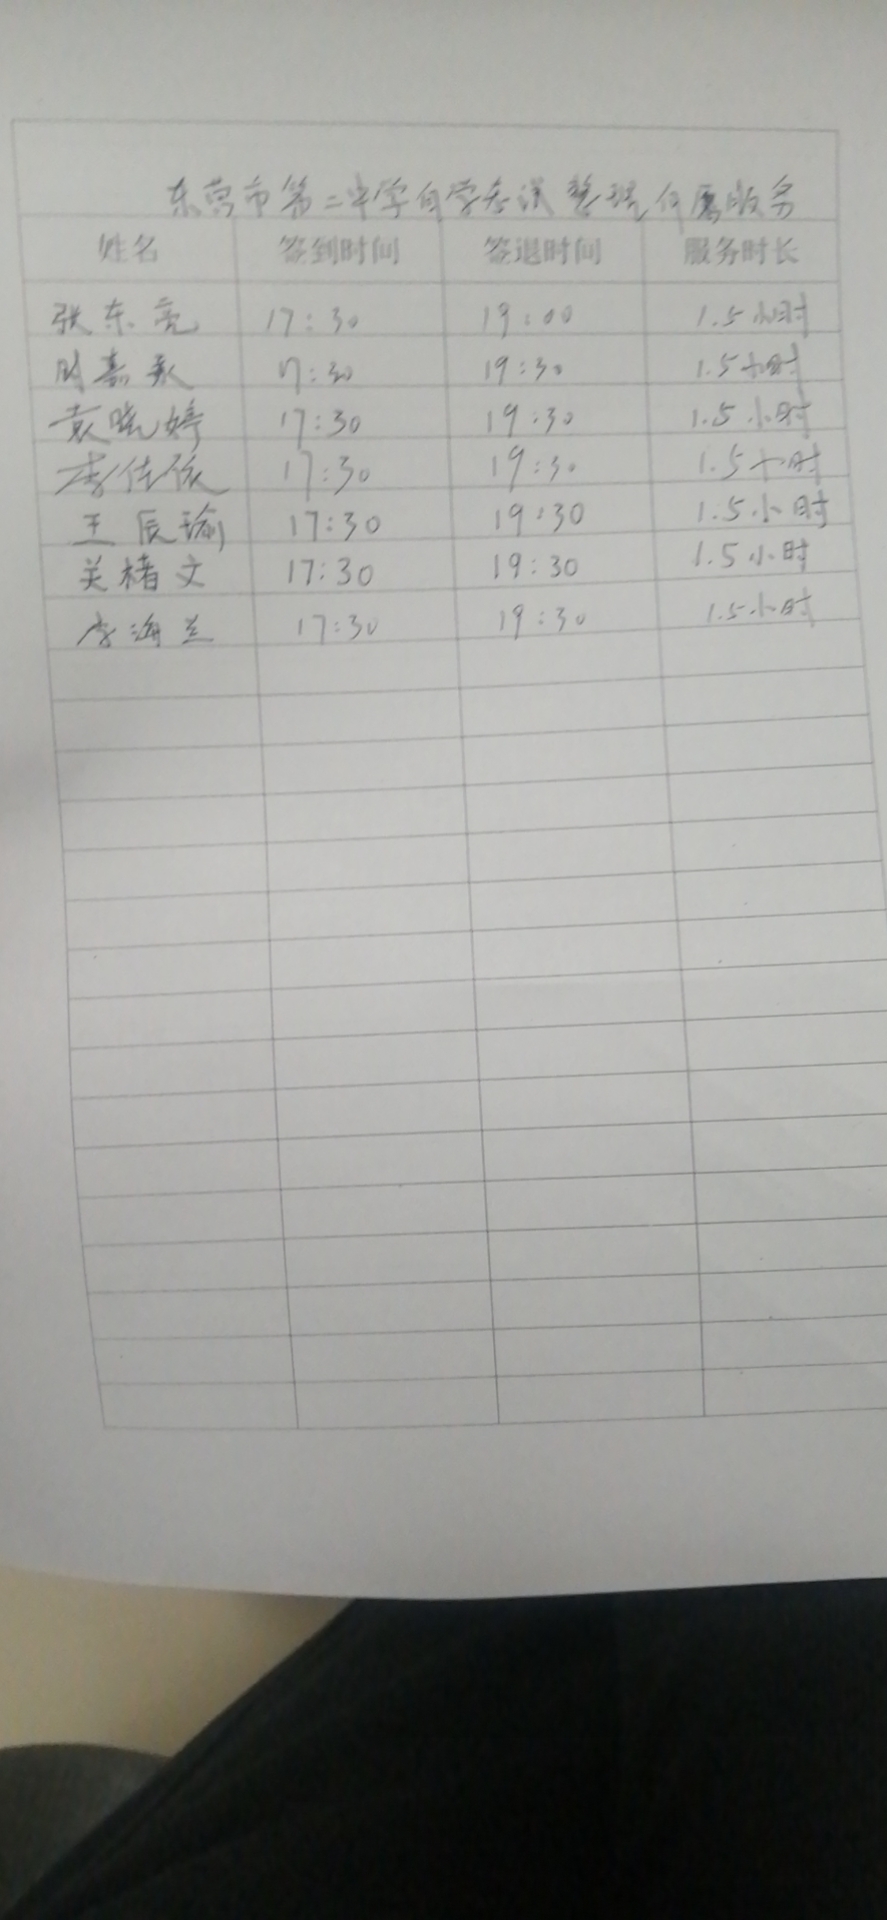 东营市第二中学自学考试整理志愿服务
姓名 签到时间 签退时间 服务时长
张东亮 17:30 19:00 1.5小时
17:30 19:30 1.5小时
袁晓婷 17:30 19:30 1.5小时
李佳依 17:30 19:30 1.5小时
王辰瑜 17:30 19:30 1.5小时
关楮文 17:30 19:30 1.5小时
李海兰 17:30 19:30 1.5小时